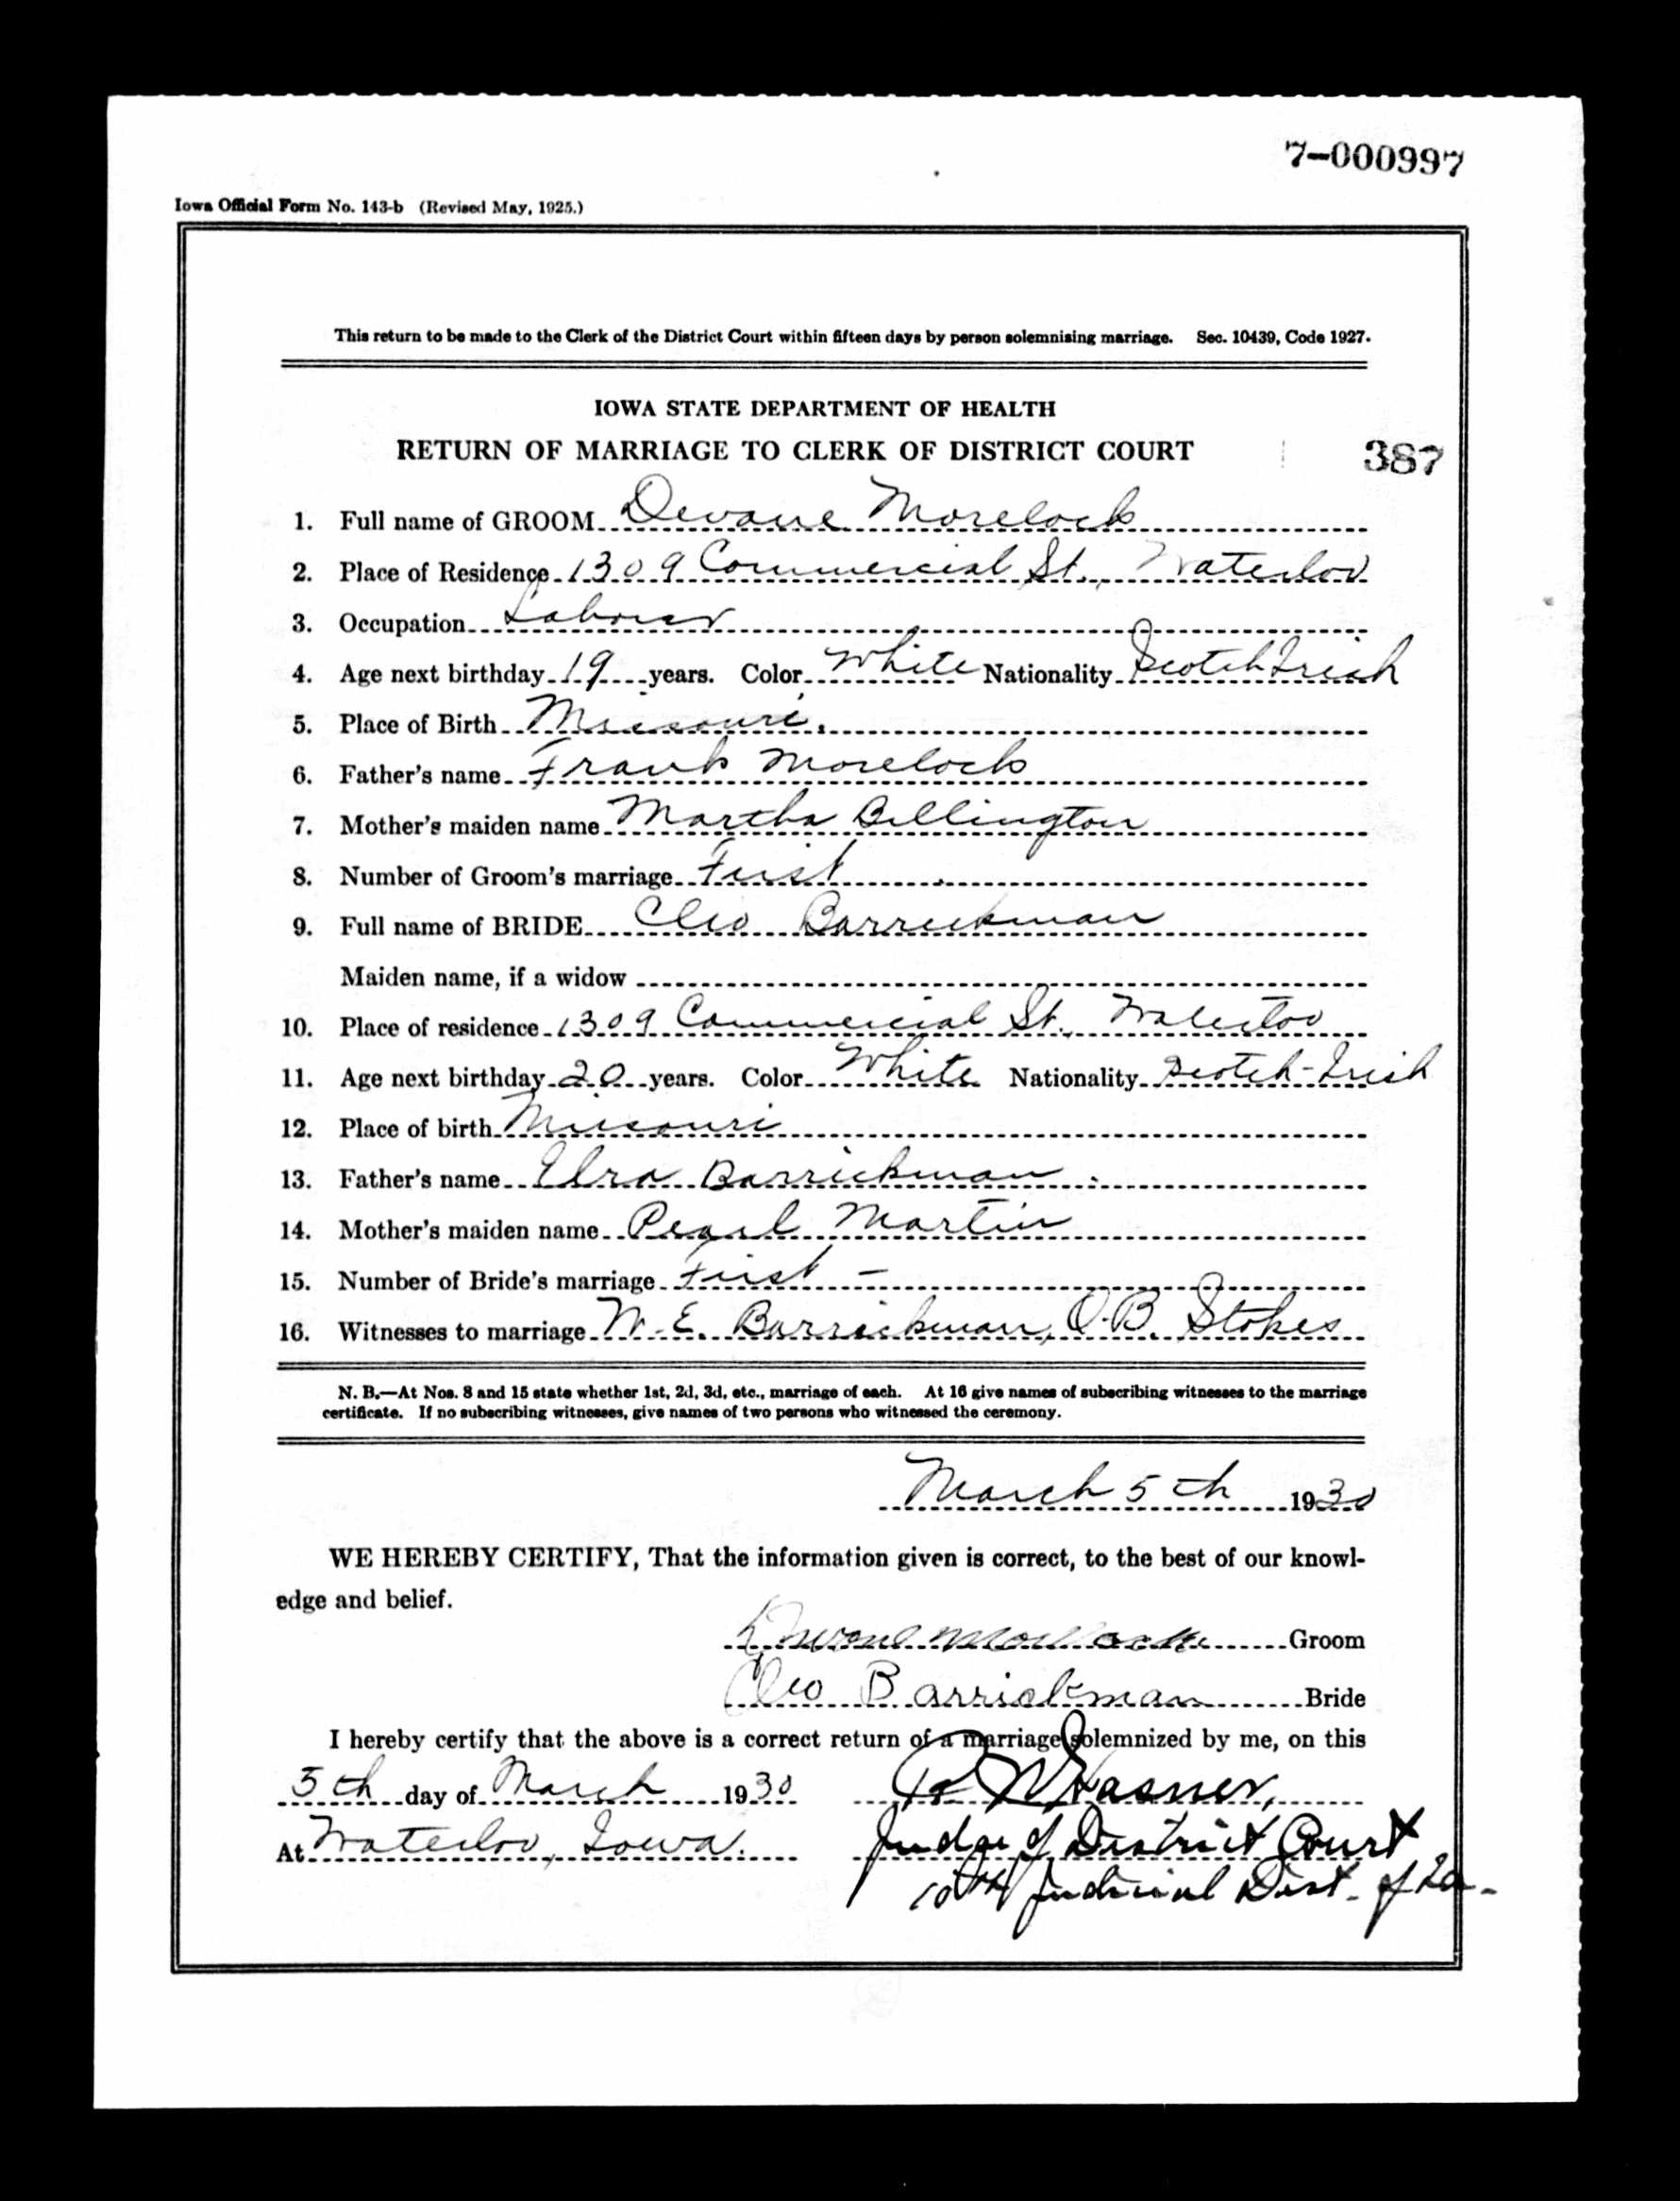 7-000997
Iowa Official Form No. 143-b (Revised May, 1925.)
This return to be made to the Clerk of the District Court within fifteen days by person solemnising marriage. Sec. 10439, Code 1927.
IOWA STATE DEPARTMENT OF HEALTH
RETURN OF MARRIAGE TO CLERK OF DISTRICT COURT 387
1. Full name of GROOM Devane Morelock
2. Place of Residence 1309 Commercial St., Waterloo
3. Occupation Laborer
4. Age next birthday 19 years. Color White Nationality Scotch Irish
5. Place of Birth Missouri.
6. Father's name Frank Morelock
7. Mother's maiden name Martha Billington
8. Number of Groom's marriage First
9. Full name of BRIDE Cleo Barrickman
Maiden name, if a widow
10. Place of residence 1309 Commercial St., Waterloo
11. Age next birthday 20 years. Color White Nationality Scotch-Irish
12. Place of birth Missouri
13. Father's name Elra Barrickman
14. Mother's maiden name Pearl Martin
15. Number of Bride's marriage First -
16. Witnesses to marriage W. E. Barrickman, O.B. Stokes
N. B.—At Nos. 8 and 15 state whether 1st, 2d, 3d, etc., marriage of each. At 16 give names of subscribing witnesses to the marriage
certificate. If no subscribing witnesses, give names of two persons who witnessed the ceremony.
March 5th 1930
WE HEREBY CERTIFY, That the information given is correct, to the best of our knowl-
edge and belief.
Groom
Cleo Barrickman Bride
I hereby certify that the above is a correct return of a marriage solemnized by me, on this
5th day of March 1930 Wasner,
At Waterloo, Iowa. Judge of District Court
10th Judicial Dist. of Ia.